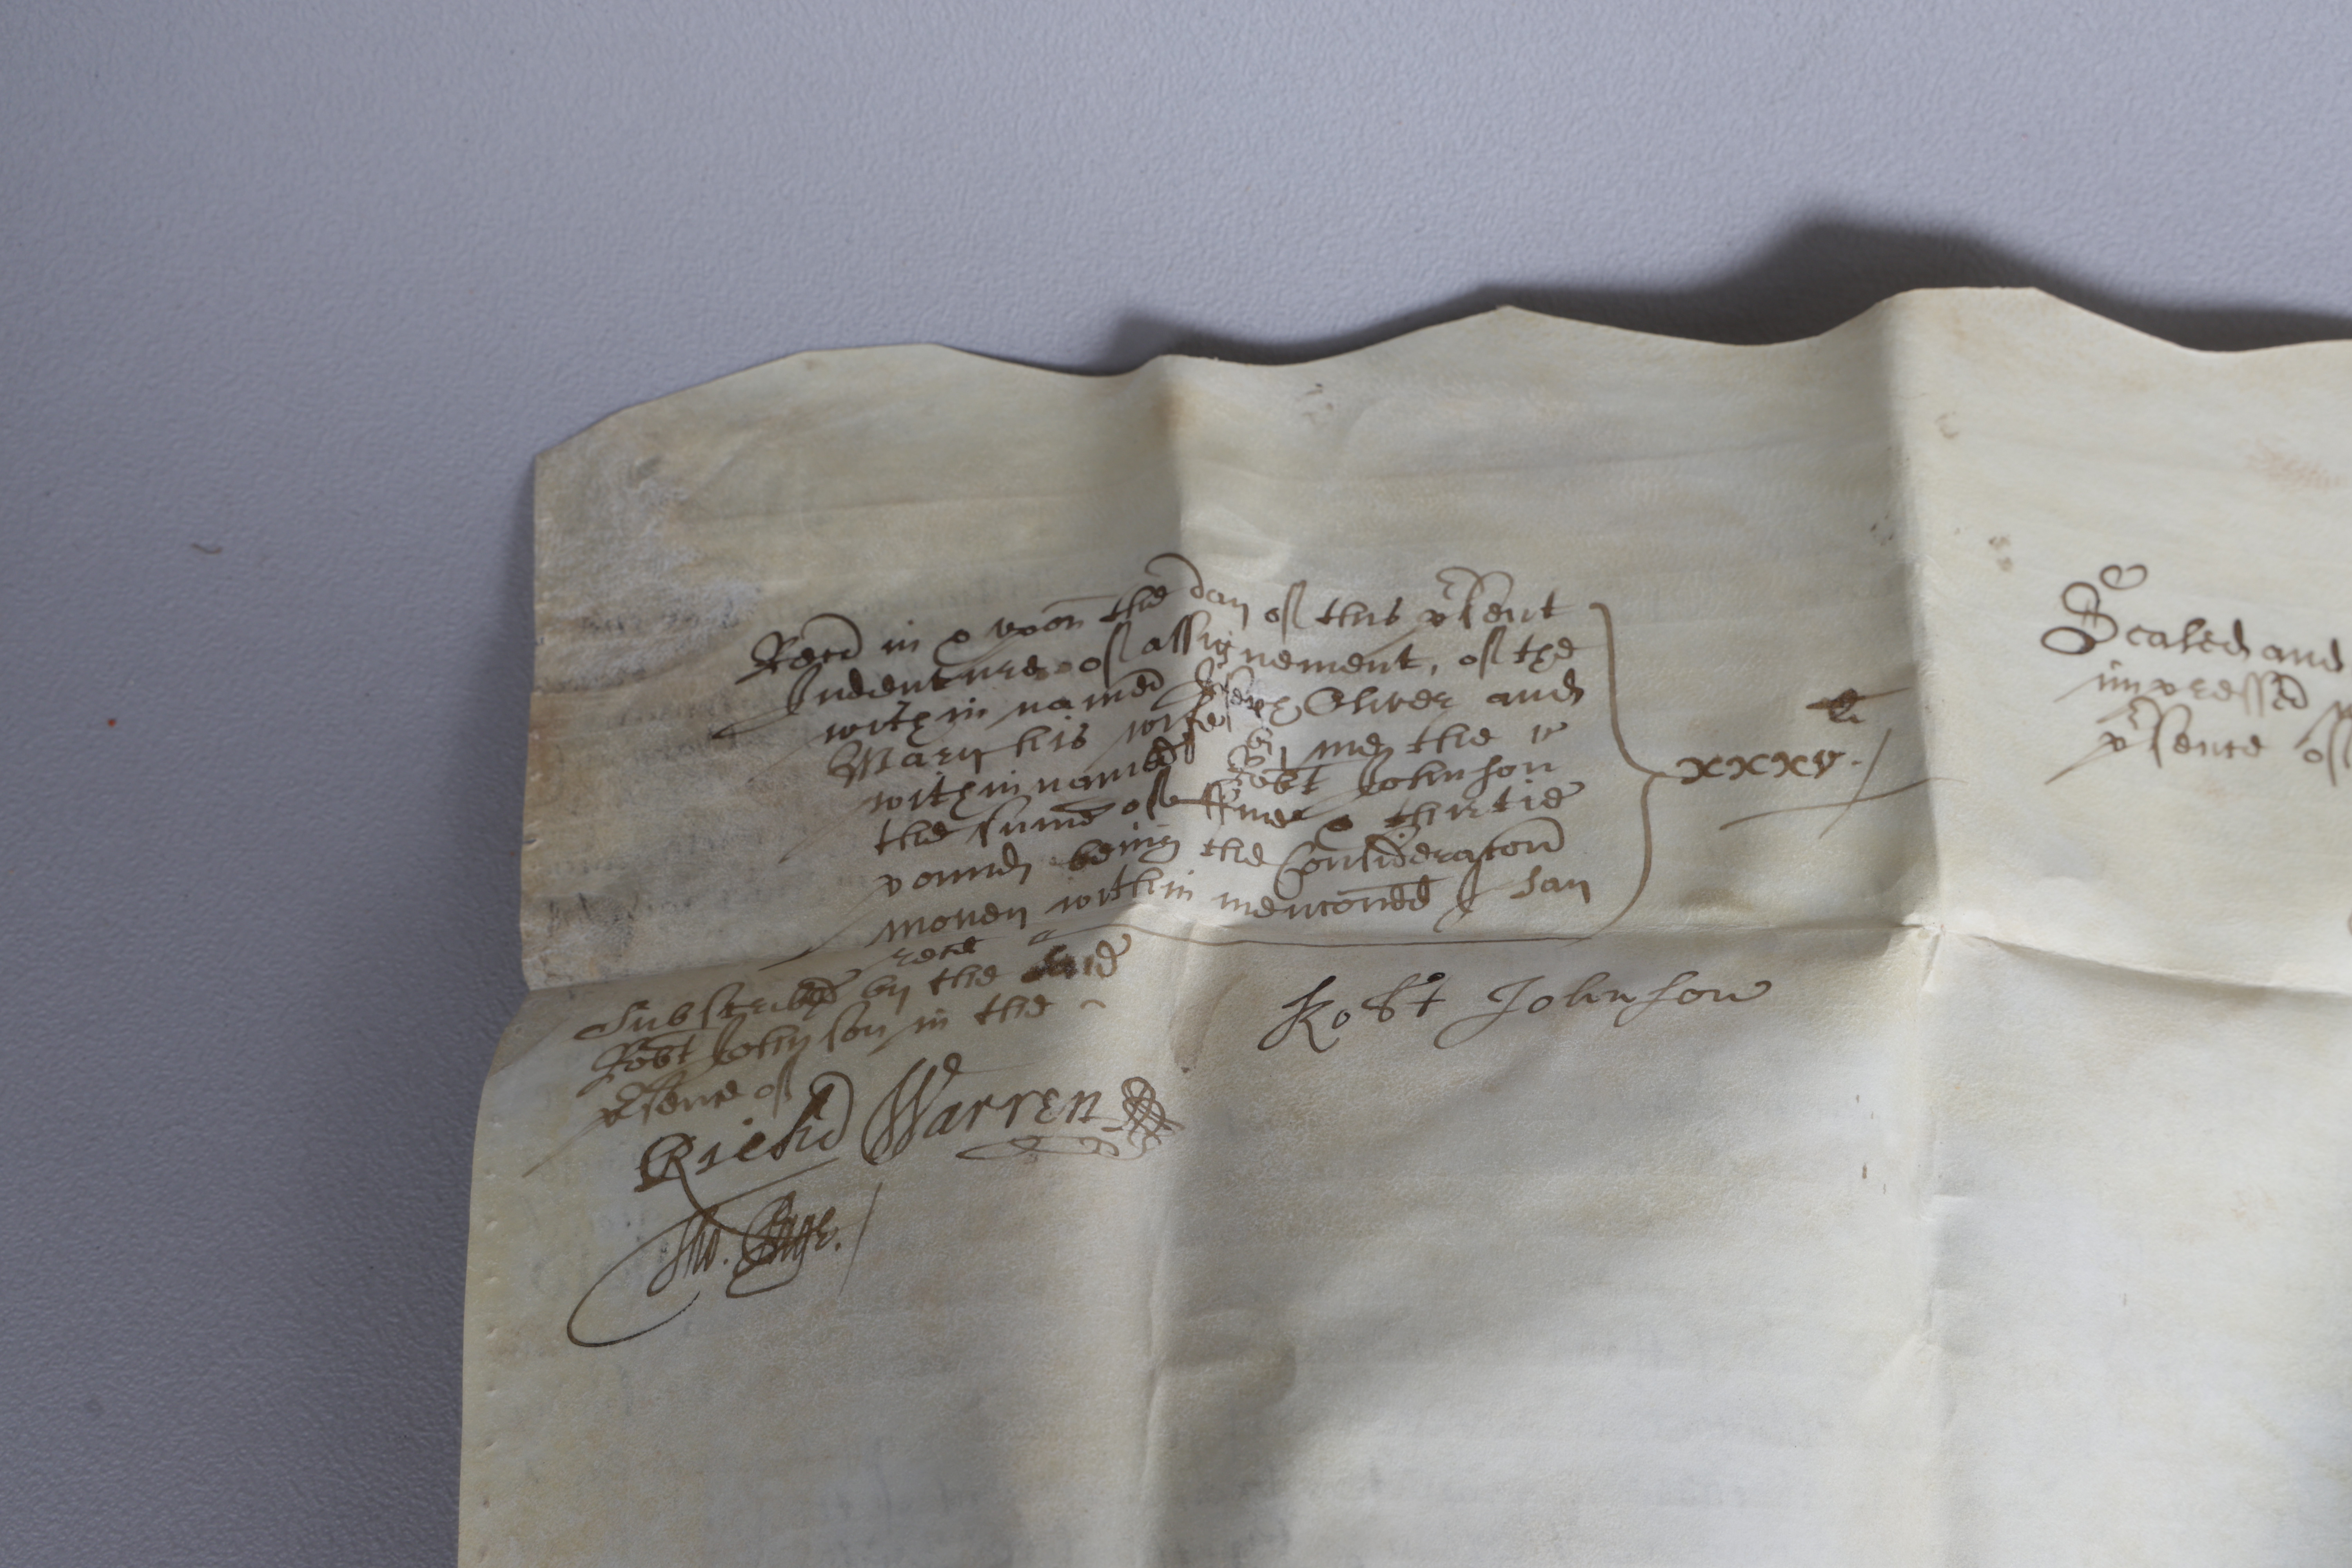 Recd in & vpon the day of this pr̃sent
Indenture of assignement, of the
within named Joseph Oliver and
Mary his wife by mee the
within named Robt Johnson
the sume of ffive & thirtie
pounds being the Consideracon
money within menconed I say
recd
xxxv li
Robt Johnson
Subscribed by the said
Robt Johnson in the
pr̃sence of
Richd Warren
Tho. Page.
Sealed and
impressed
pr̃sence of